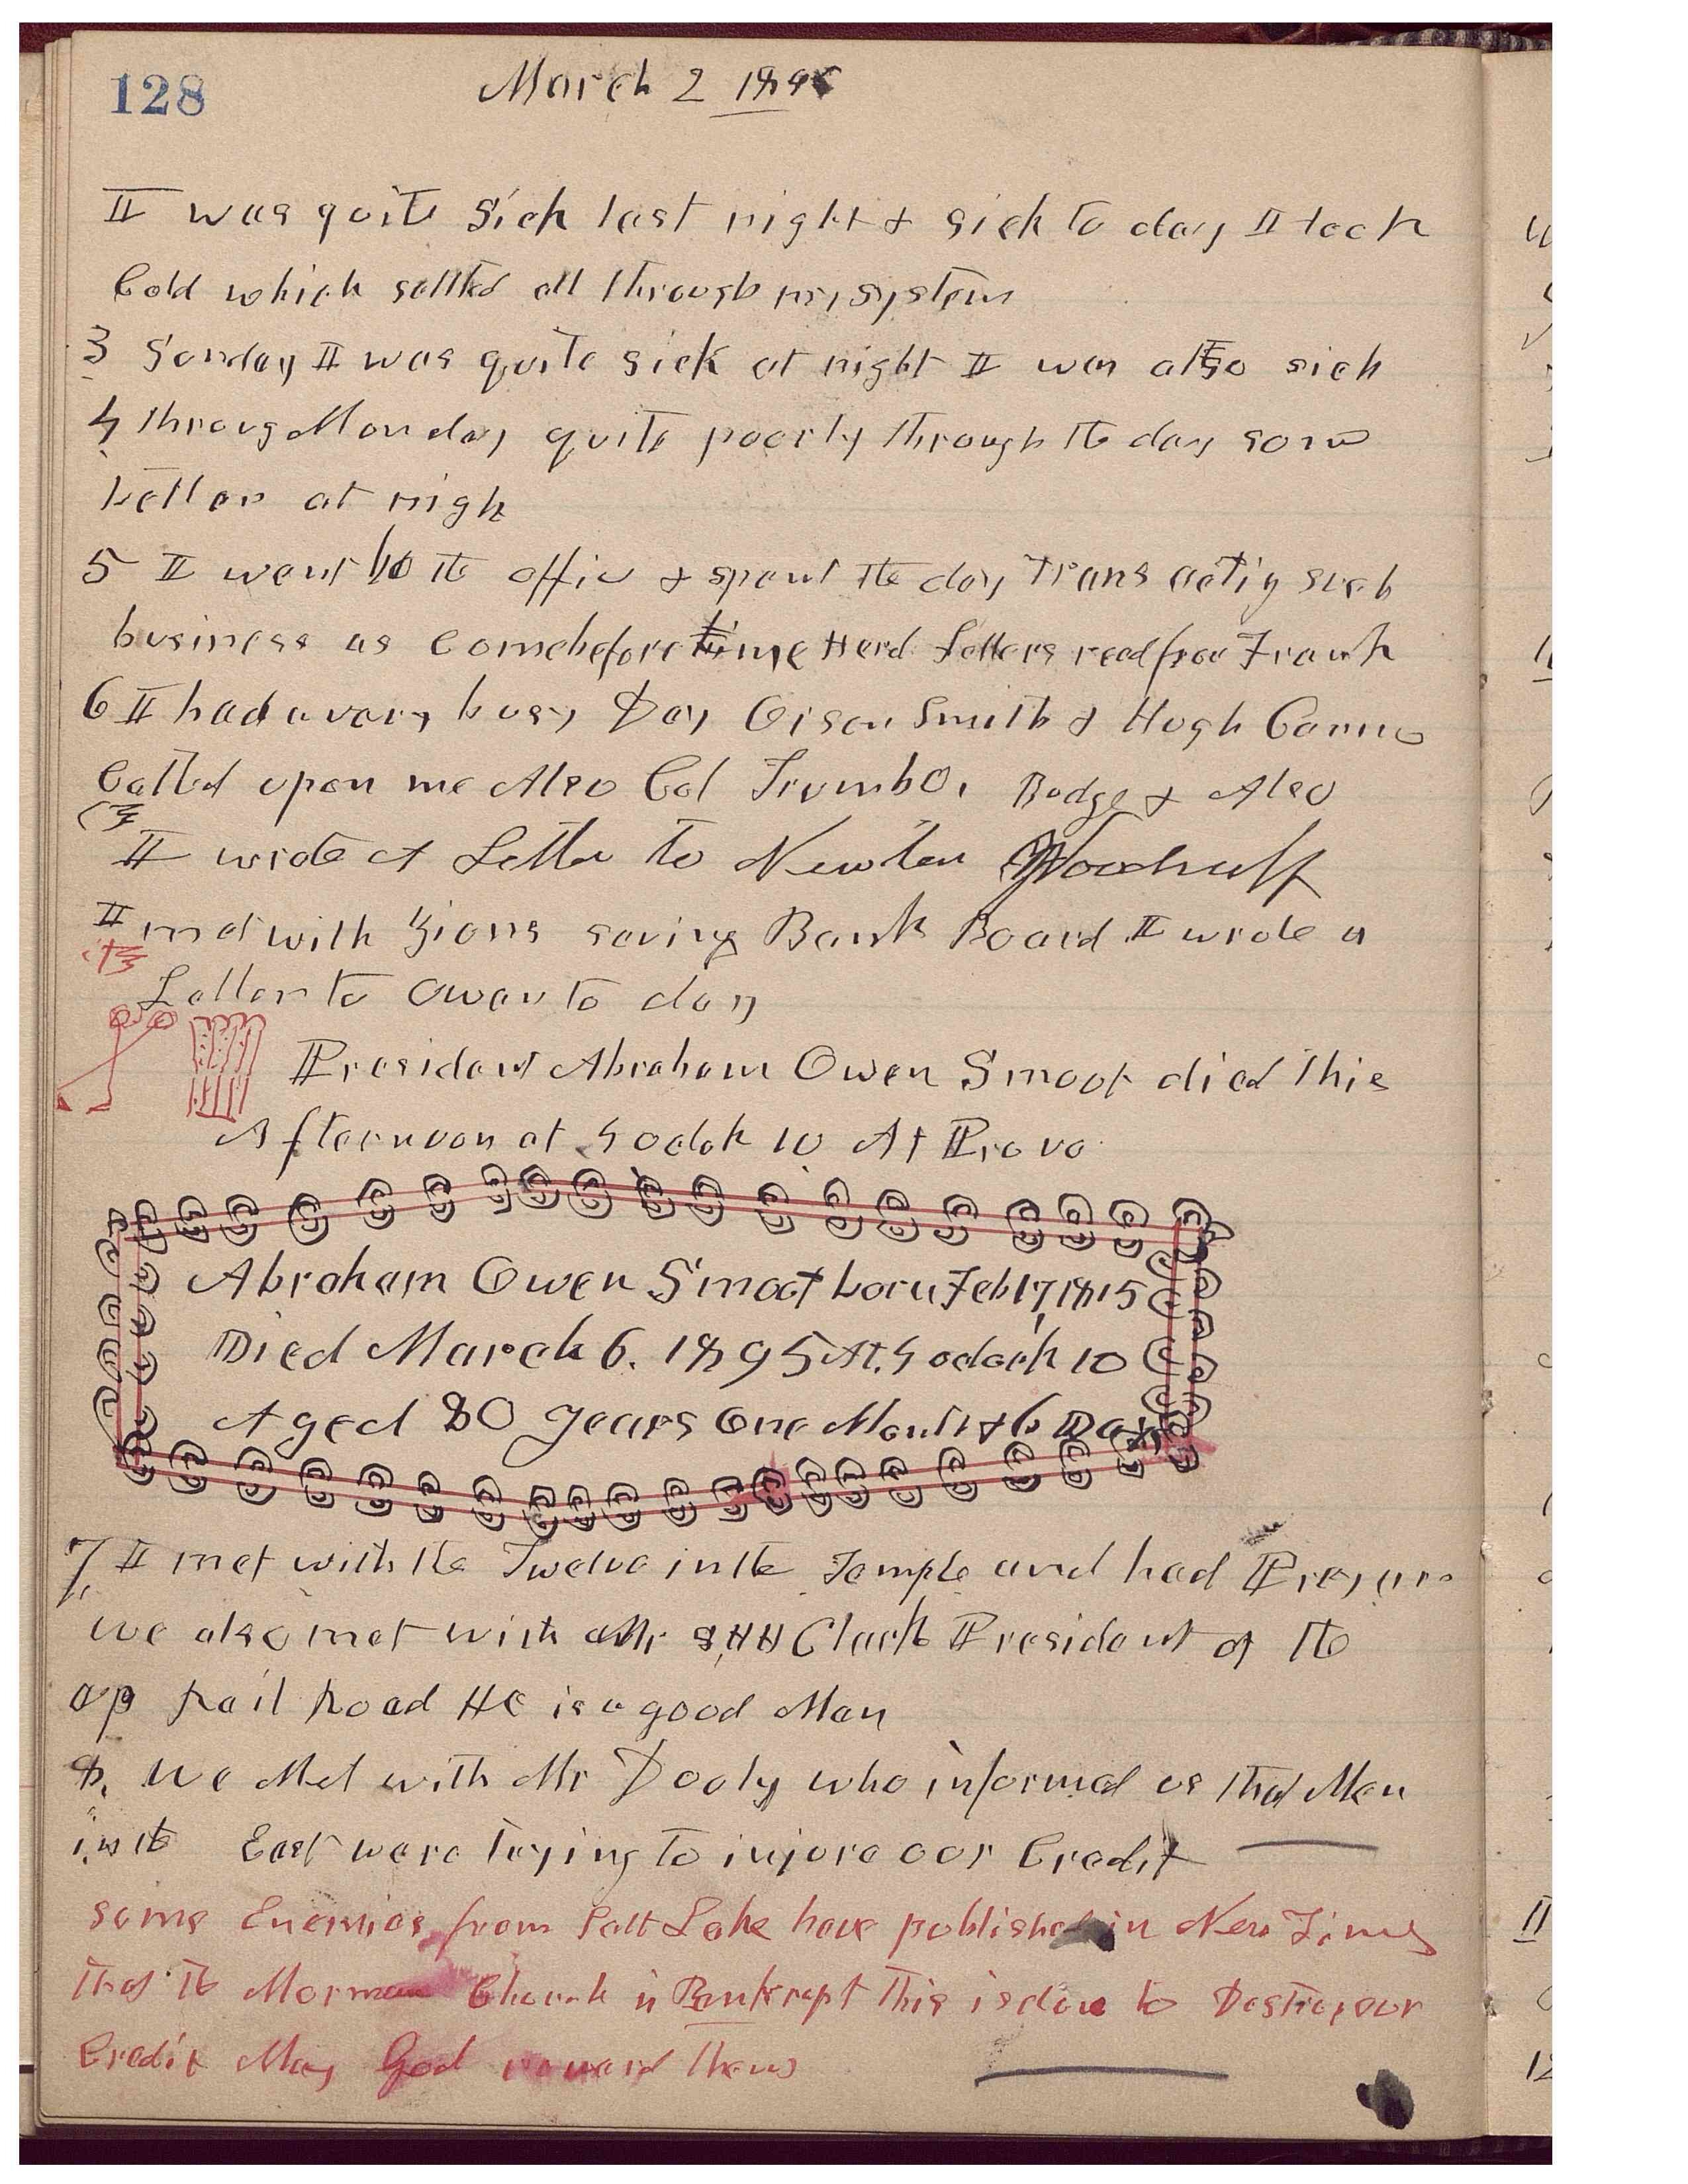 128
March 2 1895
I was quite Sick last night & sick to day I took
Cold which settled all through my system
3 Sunday I was quite sick at night I was also sick
4 throug Monday quite poorly through the day some
better at nigh
5 I went to the office & spent the day transacting such
business as Come before time me Herd Letters read from Frank
6 I had a vary busy Day Orson Smith & Hugh Cannon
Called upon me Also Col Trumbo, Badge & Also
I wrote A Letter to Newton Woodruff
I met with Zions saving Bank Board I wrote a
Letter to Owen to day
President Abraham Owen Smoot died this
Afternoon at 4 oclok 10 At Provo
Abraham Owen Smoot born Feb 17, 1815
Died March 6. 1895 At. 4 oclock 10
Aged 80 years One Month & 6 Days
7, I met with the Twelve in the Temple and had Prayers
we also met with Mr S, H H Clark President of the
up Rail Road He is a good Man
8. We Met with Mr Dooly who informed us that Men
in the East were trying to injure our Credit
some Enemies from Salt Lake have published in New Times
that the Mormon Church is Bankrupt this is done to Destroy our
Credit May God reward them